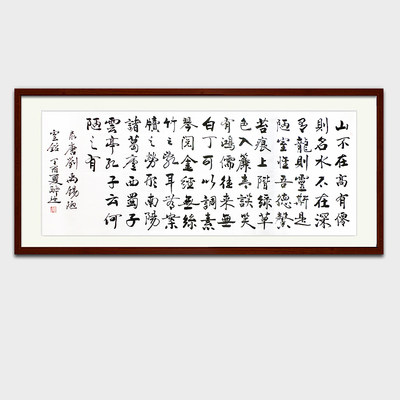 山不在高有僊
則名水不在深
有龍則靈斯是
陋室惟吾德馨
苔痕上階綠草
色入簾青談笑
有鴻儒往來無
白丁可以調素
琴閱金經無絲
竹之亂耳無案
牘之勞形南陽
諸葛廬西蜀子
雲亭孔子云何
陋之有
录唐劉禹錫陋
室銘丁酉夏